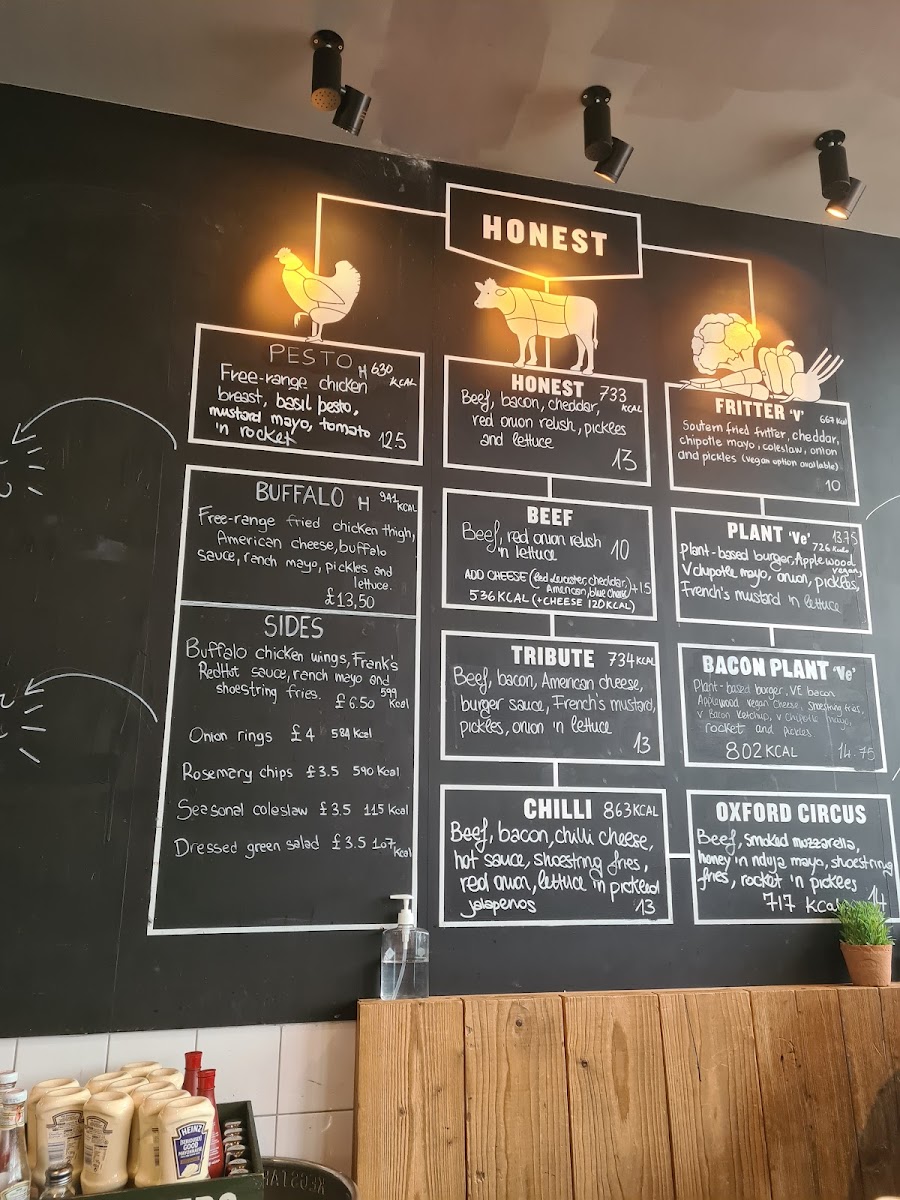 HONEST
PESTO H 630 KCAL
Free-range chicken
breast, basil pesto,
mustard mayo, tomato
'n rocket 12.5
BUFFALO H 941 KCAL
Free-range fried chicken thigh,
American cheese, buffalo
sauce, ranch mayo, pickles and
lettuce.
£13,50
SIDES
Buffalo chicken wings, Frank's
RedHot sauce, ranch mayo and
shoestring fries. £6.50 599 Kcal
Onion rings £4 584 Kcal
Rosemary chips £3.5 590 Kcal
Seasonal coleslaw £3.5 115 Kcal
Dressed green salad £3.5 107 Kcal
HONEST 733 KCAL
Beef, bacon, cheddar,
red onion relish, pickles
and lettuce 13
BEEF
Beef, red onion relish
'n lettuce 10
ADD CHEESE (Red Leicester, cheddar,
American, blue cheese) +1.5
536 KCAL (+CHEESE 120 KCAL)
TRIBUTE 734 KCAL
Beef, bacon, American cheese,
burger sauce, French's mustard,
pickles, onion 'n lettuce
13
CHILLI 863 KCAL
Beef, bacon, chilli cheese,
hot sauce, shoestring fries,
red onion, lettuce 'n pickled
jalapenos 13
FRITTER 'V' 667 Kcal
Soutern fried fritter, cheddar,
chipotle mayo, coleslaw, onion
and pickles (vegan option available)
10
PLANT 'Ve' 13.75
726 Kcal
Plant-based burger, Applewood vegan,
V chipotle mayo, onion, pickles,
French's mustard 'n lettuce
BACON PLANT 'Ve'
Plant-based burger, VE bacon
Applewood vegan cheese, shoestring fries,
v Bacon Ketchup, v chipotle mayo,
rocket and pickles
802 KCAL 14.75
OXFORD CIRCUS
Beef, smoked mozzarella,
honey 'n nduja mayo, shoestring
fries, rocket 'n pickles
717 Kcal 14
HEINZ
SERIOUSLY
GOOD
MAYONNAISE